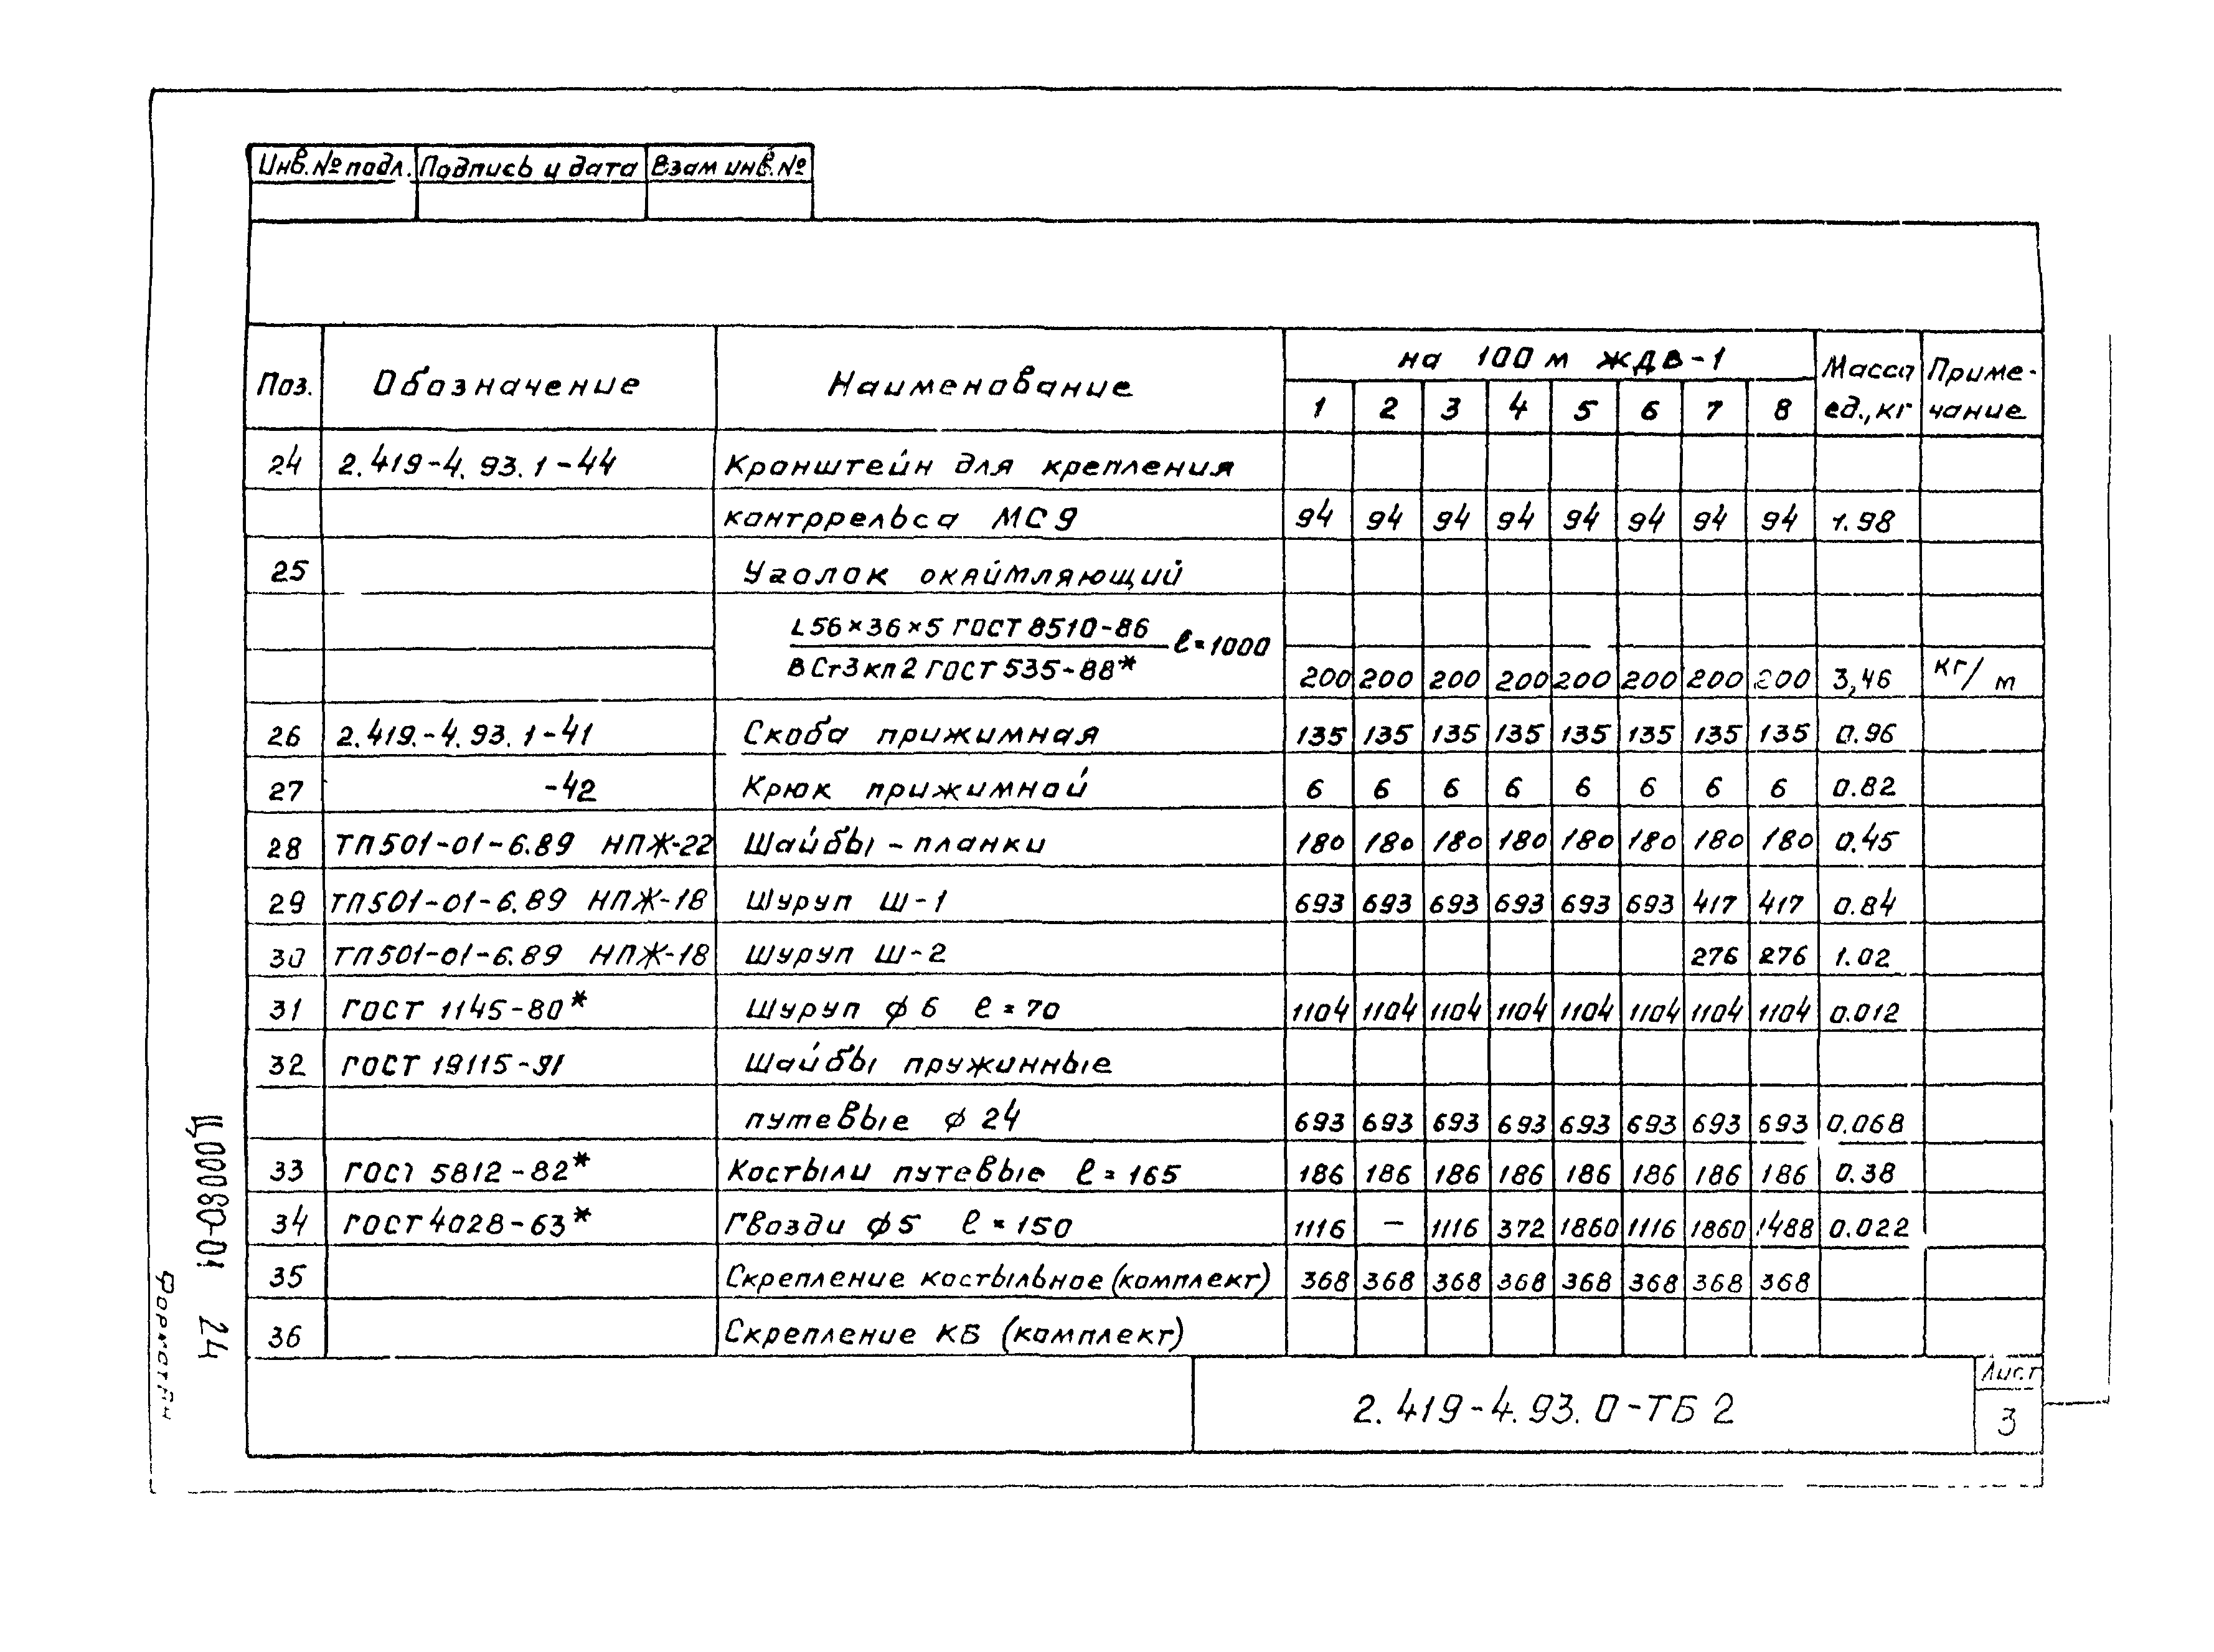 Инв. № подл. Подпись и дата Взам инв. №
Поз. Обозначение Наименование на 100 м ЖДВ-1 Масса ед., кг Приме-чание
1 2 3 4 5 6 7 8
24 2.419-4.93.1-44 Кронштейн для крепления
контррельса МС9 94 94 94 94 94 94 94 94 1.98
25 Уголок окаймляющий
L56×36×5 ГОСТ 8510-86
ℓ=1000
ВСт3кп2 ГОСТ 535-88* 200 200 200 200 200 200 200 200 3,46 кг/м
26 2.419.-4.93.1-41 Скоба прижимная 135 135 135 135 135 135 135 135 0.96
27 -42 Крюк прижимной 6 6 6 6 6 6 6 6 0.82
28 ТП501-01-6.89 НПЖ-22 Шайбы-планки 180 180 180 180 180 180 180 180 0.45
29 ТП501-01-6.89 НПЖ-18 Шуруп Ш-1 693 693 693 693 693 693 417 417 0.84
30 ТП501-01-6.89 НПЖ-18 Шуруп Ш-2 276 276 1.02
31 ГОСТ 1145-80* Шуруп ϕ6 ℓ=70 1104 1104 1104 1104 1104 1104 1104 1104 0.012
32 ГОСТ 19115-91 Шайбы пружинные
путевые ϕ24 693 693 693 693 693 693 693 693 0.068
33 ГОСТ 5812-82* Костыли путевые ℓ=165 186 186 186 186 186 186 186 186 0.38
34 ГОСТ 4028-63* Гвозди ϕ5 ℓ=150 1116 — 1116 372 1860 1116 1860 1488 0.022
35 Скрепление костыльное (комплект) 368 368 368 368 368 368 368 368
36 Скрепление КБ (комплект)
2.419-4.93.0-ТБ 2
Лист
3
Ц00080-01 24